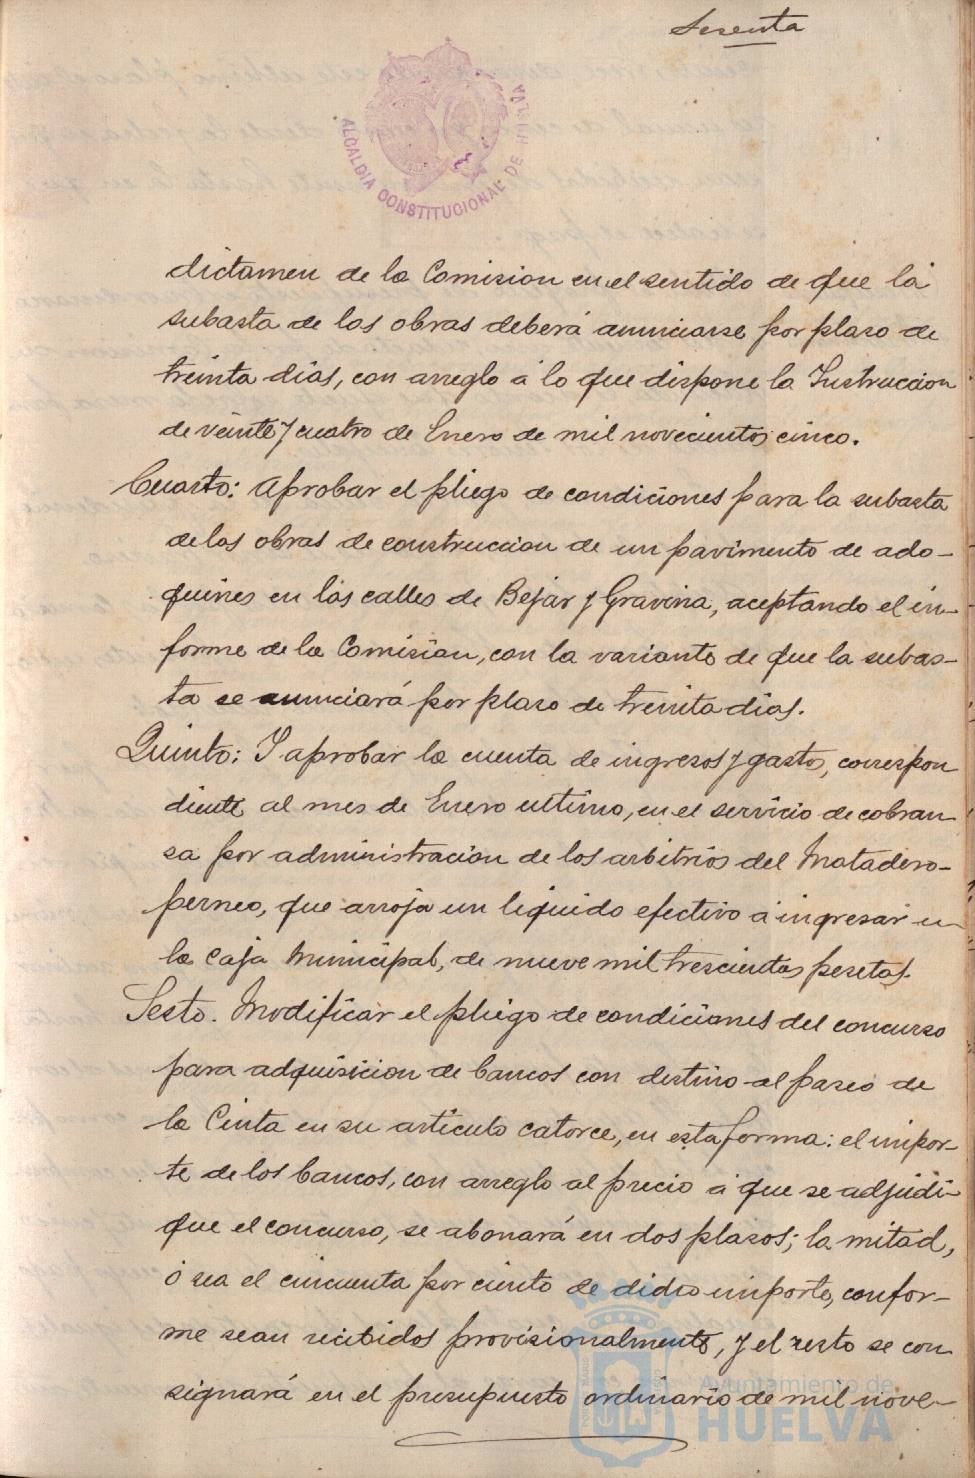 Sesenta
ALCALDIA CONSTITUCIONAL DE HUELVA
dictamen de la Comision en el sentido de que la
subasta de las obras deberá anunciarse por plaso de
treinta dias, con arreglo á lo que dispone la Instruccion
de veinte y cuatro de Enero de mil novecientos cinco.
Cuarto: Aprobar el pliego de condiciones para la subasta
de las obras de construccion de un pavimento de ado-
quines en las calles de Bejar y Gravina, aceptando el in-
forme de la Comision, con la variante de que la subas-
ta se anunciará por plaso de treinta dias.
Quinto: Y aprobar la cuenta de ingresos y gastos, correspon
diente al mes de Enero ultimo, en el servicio de cobran-
sa por administracion de los arbitrios del Matadero-
perneo, que arroja un liquido efectivo á ingresar en
la Caja Municipal, de nueve mil trescientas pesetas.
Sesto. Modificar el pliego de condiciones del concurso
para adquisicion de bancos con destino al paseo de
la Cinta en su artículo catorce, en esta forma: el impor-
te de los bancos, con arreglo al precio á que se adjudi-
que el concurso, se abonará en dos plasos; la mitad,
ó sea el cincuenta por ciento de dicho importe, confor-
me sean recibidos provisionalmente, y el resto se con
signará en el presupuesto ordinario de mil nove-
Ayuntamiento de
HUELVA